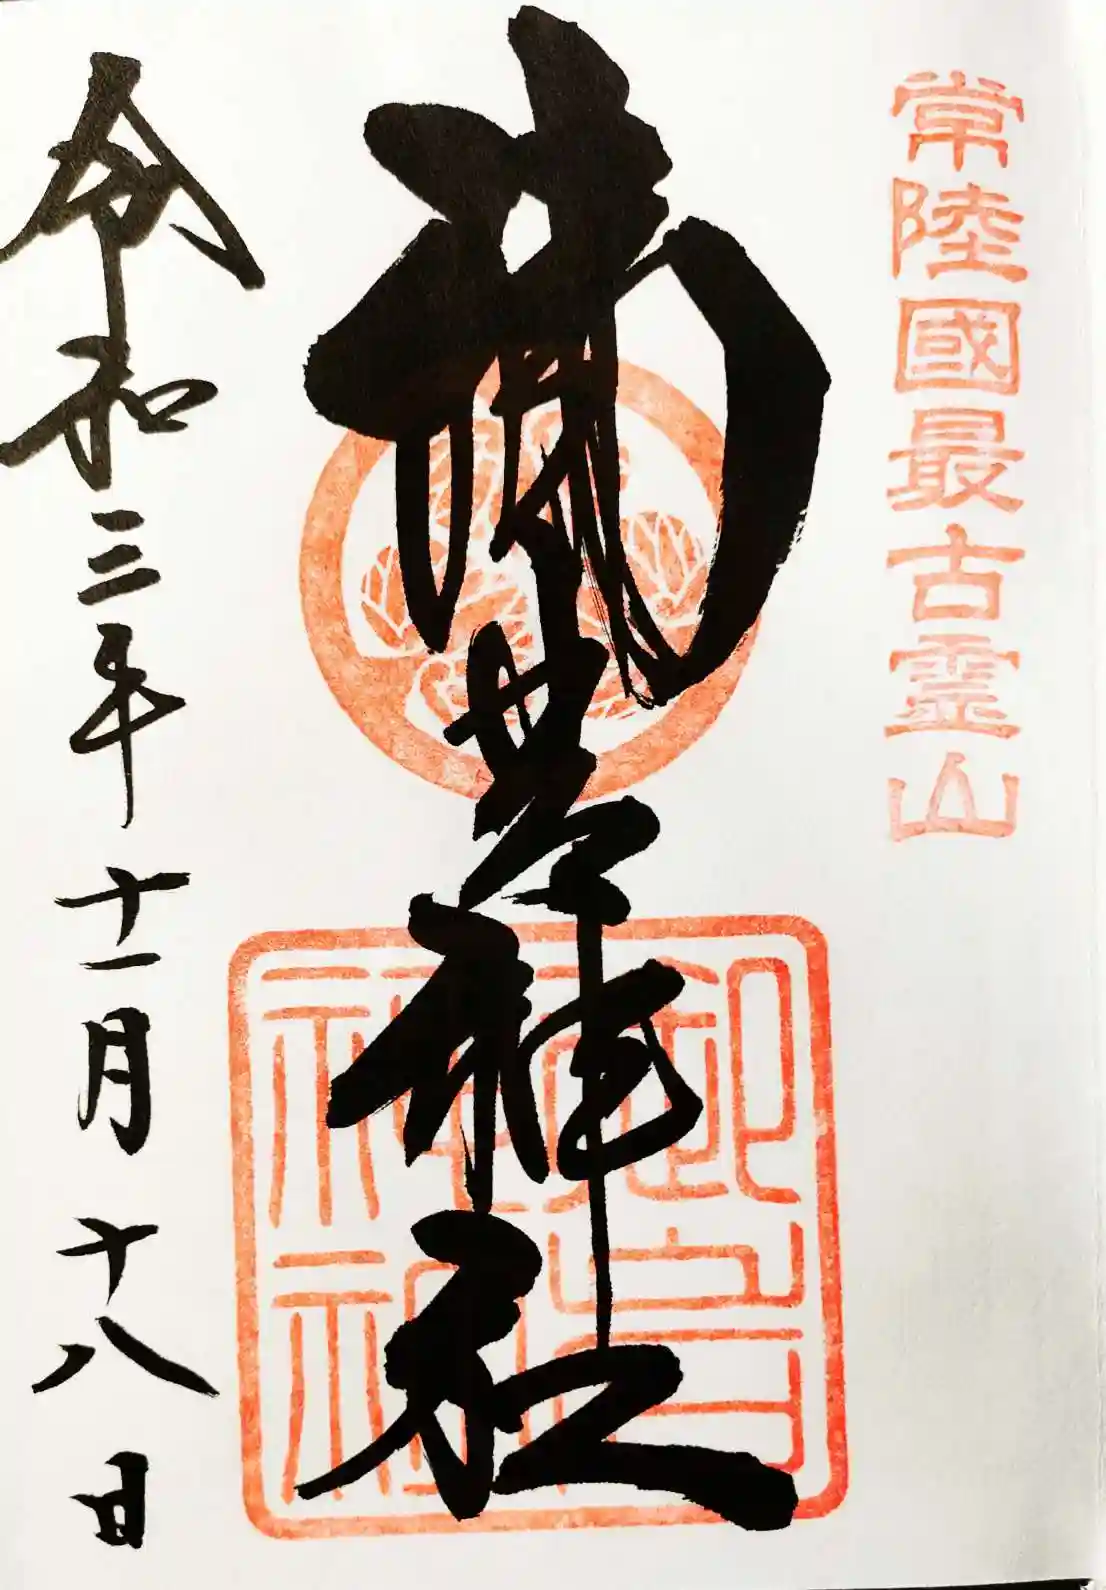 常陸國最古霊山
御岩神社
御岩
神社
令和三年十一月十八日